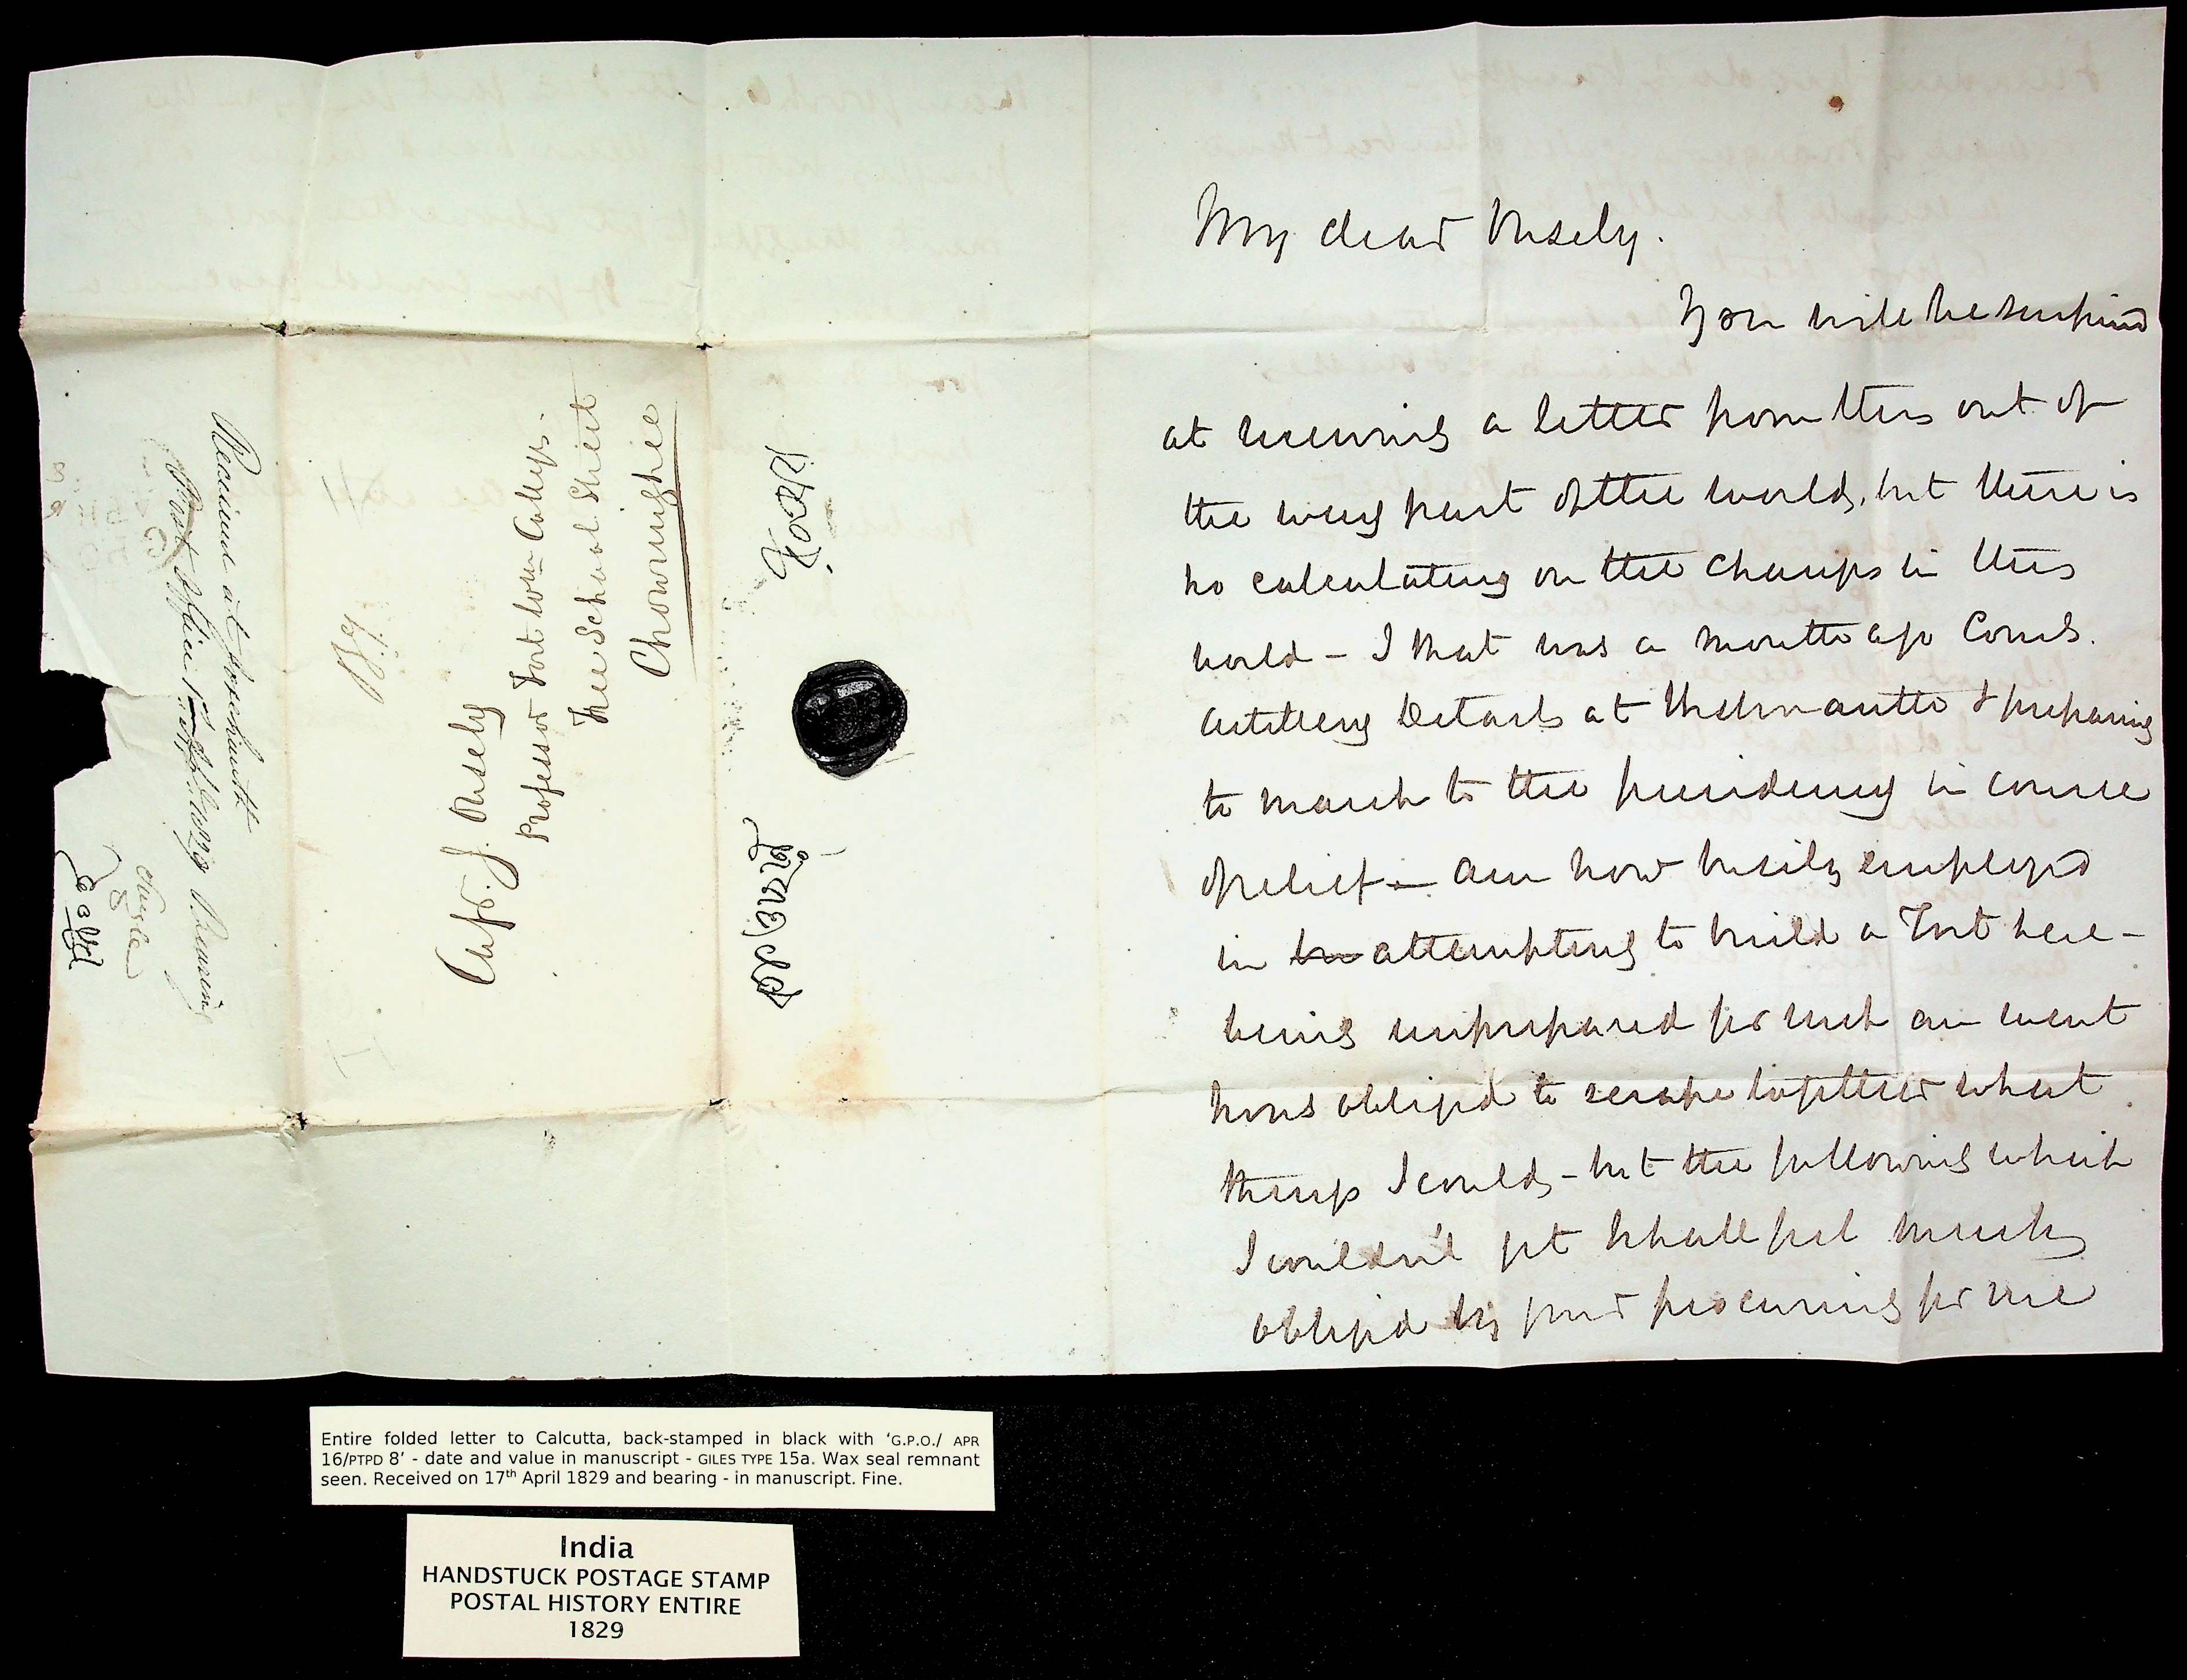 My dear Ousely.
You will be surprised
at receiving a letter from this out of
the way part of the world, but there is
no calculating on the changes in this
world – I that was a month ago Comdg.
Artillery Details at & preparing
to march to the presidency in course
of relief – am now busily employed
in attempting to build a Fort here –
being unprepared for such an event
was obliged to scrape together what
things I could, – but the following which
I couldn't get I shall feel much
obliged by your procuring for me
Capt. J. Ousely
Professor Fort Wm College.
Free School Street
Chowringhee
Received at
Post Office 17 April 1829 Bearing
Single
Entire folded letter to Calcutta, back-stamped in black with ‘G.P.O./ APR
16/PTPD 8’ - date and value in manuscript - GILES TYPE 15a. Wax seal remnant
seen. Received on 17th April 1829 and bearing - in manuscript. Fine.
India
HANDSTUCK POSTAGE STAMP
POSTAL HISTORY ENTIRE
1829